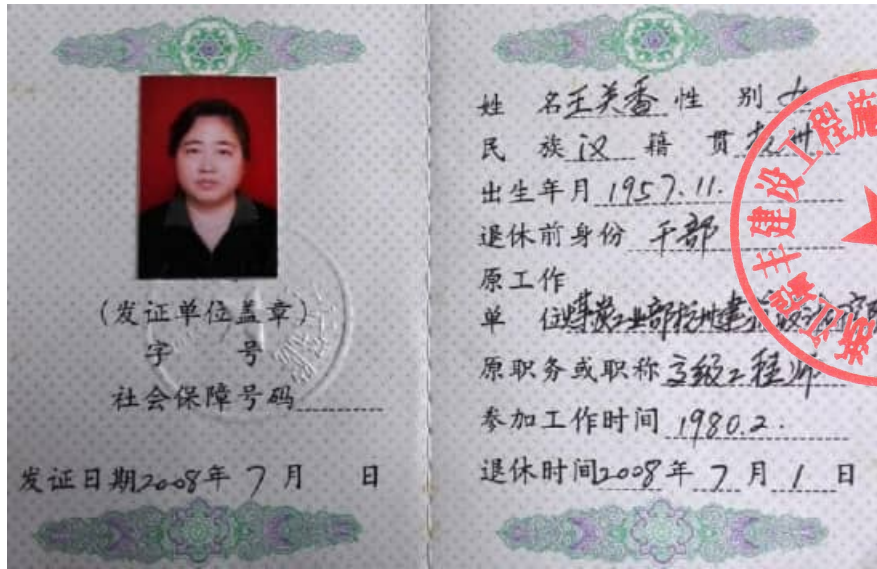 (发证单位盖章)
字 号
社会保障号码
发证日期2008年7月 日
姓 名王美香 性 别女
民 族汉 籍 贯杭州
出生年月1957.11.
退休前身份 干部
原工作
单 位煤炭工业部杭州建筑设计研究
原职务或职称 高级工程师
参加工作时间 1980.2.
退休时间2008年7月1日
建设工程施